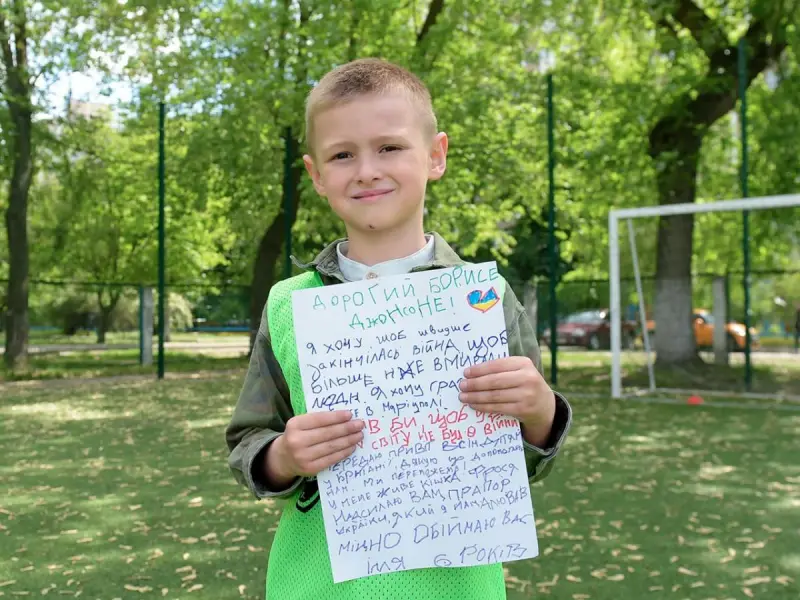 ДОРОГИЙ БОРИСЕ
ДЖОНСОНЕ!
Я ХОЧУ, ЩОБ ШВИДШЕ
ЗАКІНЧІЛАСЬ ВІЙНА, ЩОБ
БІЛЬШЕ НЕ ВМИРАЛИ
ЛЮДИ. Я ХОЧУ
В МАРІУПОЛІ
БИ, ЩОБ У
СВІТУ НЕ БУЛО ВІЙНИ
ПЕРЕДАЮ ПРИВІТ ВСІМ
У БРИТАНІЇ, ДЯКУЮ ЩО
НАМ. МИ ПЕРЕМОЖЕМО!
У МЕНЕ ЖИВЕ КІШКА ФРОСЯ
НАДСИЛАЮ ВАМ ПРАПОР
УКРАЇНИ, ЯКИЙ Я НАМАЛЮВАВ
МІЦНО ОБІЙМАЮ ВАС
ІЛЯ 6 РОКІВ